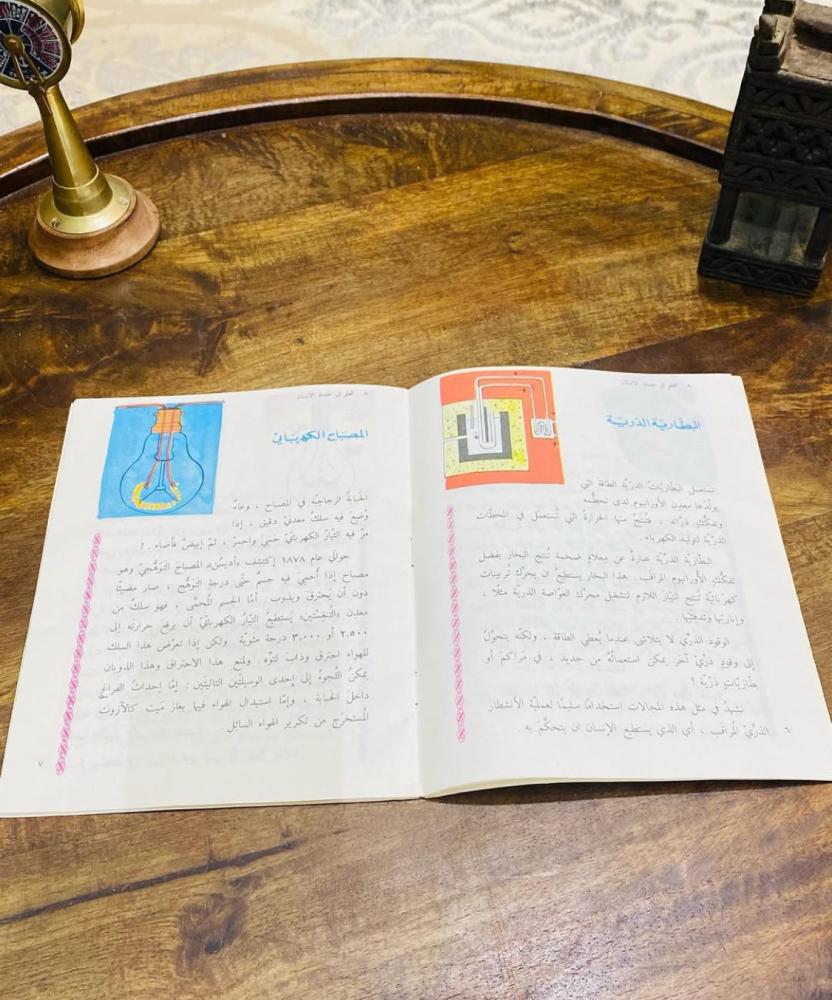 ٨ العلم في خدمة الانسان
البطاريّة الذريّة
تستعمل البطاريّات الذريّة الطاقة التي
يولّدها معدِن الأورانيوم لدى تحطّمه
وتفكّك ذرّاته ، فتُنتج منها الحرارةُ التي تُستعمل في المحطّات
الذريّة لتوليد الكهرباء.
البطّارية الذريّة عبارة عن مِغلاةٍ ضخمة تُنتج البخار بفضل
تفكّك الأورانيوم المراقَب . هذا البخار يستطيع ان يحرّك تُربينات
كهربائيّة تُنتج التيّارَ اللازم لتشغيل محرّك الغوّاصة الذريّة مثلاً ،
وإنارتها وتدفئتها.
الوقود الذرّي لا يتلاشى عندما يُعطي الطاقة ، ولكنّه يتحوّل
إلى وقودٍ ذرّيّ آخر يمكن استعمالُه من جديد ، في مَراكم أو
بطّاريّاتٍ ذرّيّة !
نشهدُ في مثل هذه المجالات استخدامًا سليمًا لعمليّة الأنشطار
الذرّيّ المُراقَب ، أي الذي يستطيع الإنسان ان يتحكّم به .
٦
٨ العلم في خدمة الانسان
المصباح الكهربائي
الحبابةُ الزجاجيّة في المصباح ، وعاءٌ
وُضِعَ فيه سلكٌ معدنيّ دقيق ، إذا
مرّ فيه التيّارُ الكهربائيّ حَمِيَ واحمرّ ، ثمّ إبيضّ فأضاء . !
حوالي عام ١٨٧٨ إكتشف «أديسُن» المصباحَ التوهّجيّ وهو
مصباح إذا أُحمِيَ فيه جسمٌ حتّى درجةِ التوهّج ، صار مضيئًا
دون أن يَحترق ويذوب . أمّا الجسم المُحمّى ، فهو سلكٌ من
معدِن «التنغستين» يستطيعُ التيّارُ الكهربائيّ أن يرفعَ حرارتَه إلى
٢,٥٠٠ أو ٣,٠٠٠ درجة مئويّة . ولكن إذا تعرّض هذا السلك
للهواء احترق وذاب لتوّه . ولمنع هذا الاحتراق وهذا الذوبان
يمكنُ اللّجوءُ إلى إحدى الوسيلتين التاليتين : إمّا إحداثُ الفراغ
داخلَ الحبابة ، وإمّا استبدال الهواء فيها بغاز مَيت كالآزوت
المُستخرَج من تكرير الهواء السائل
٧